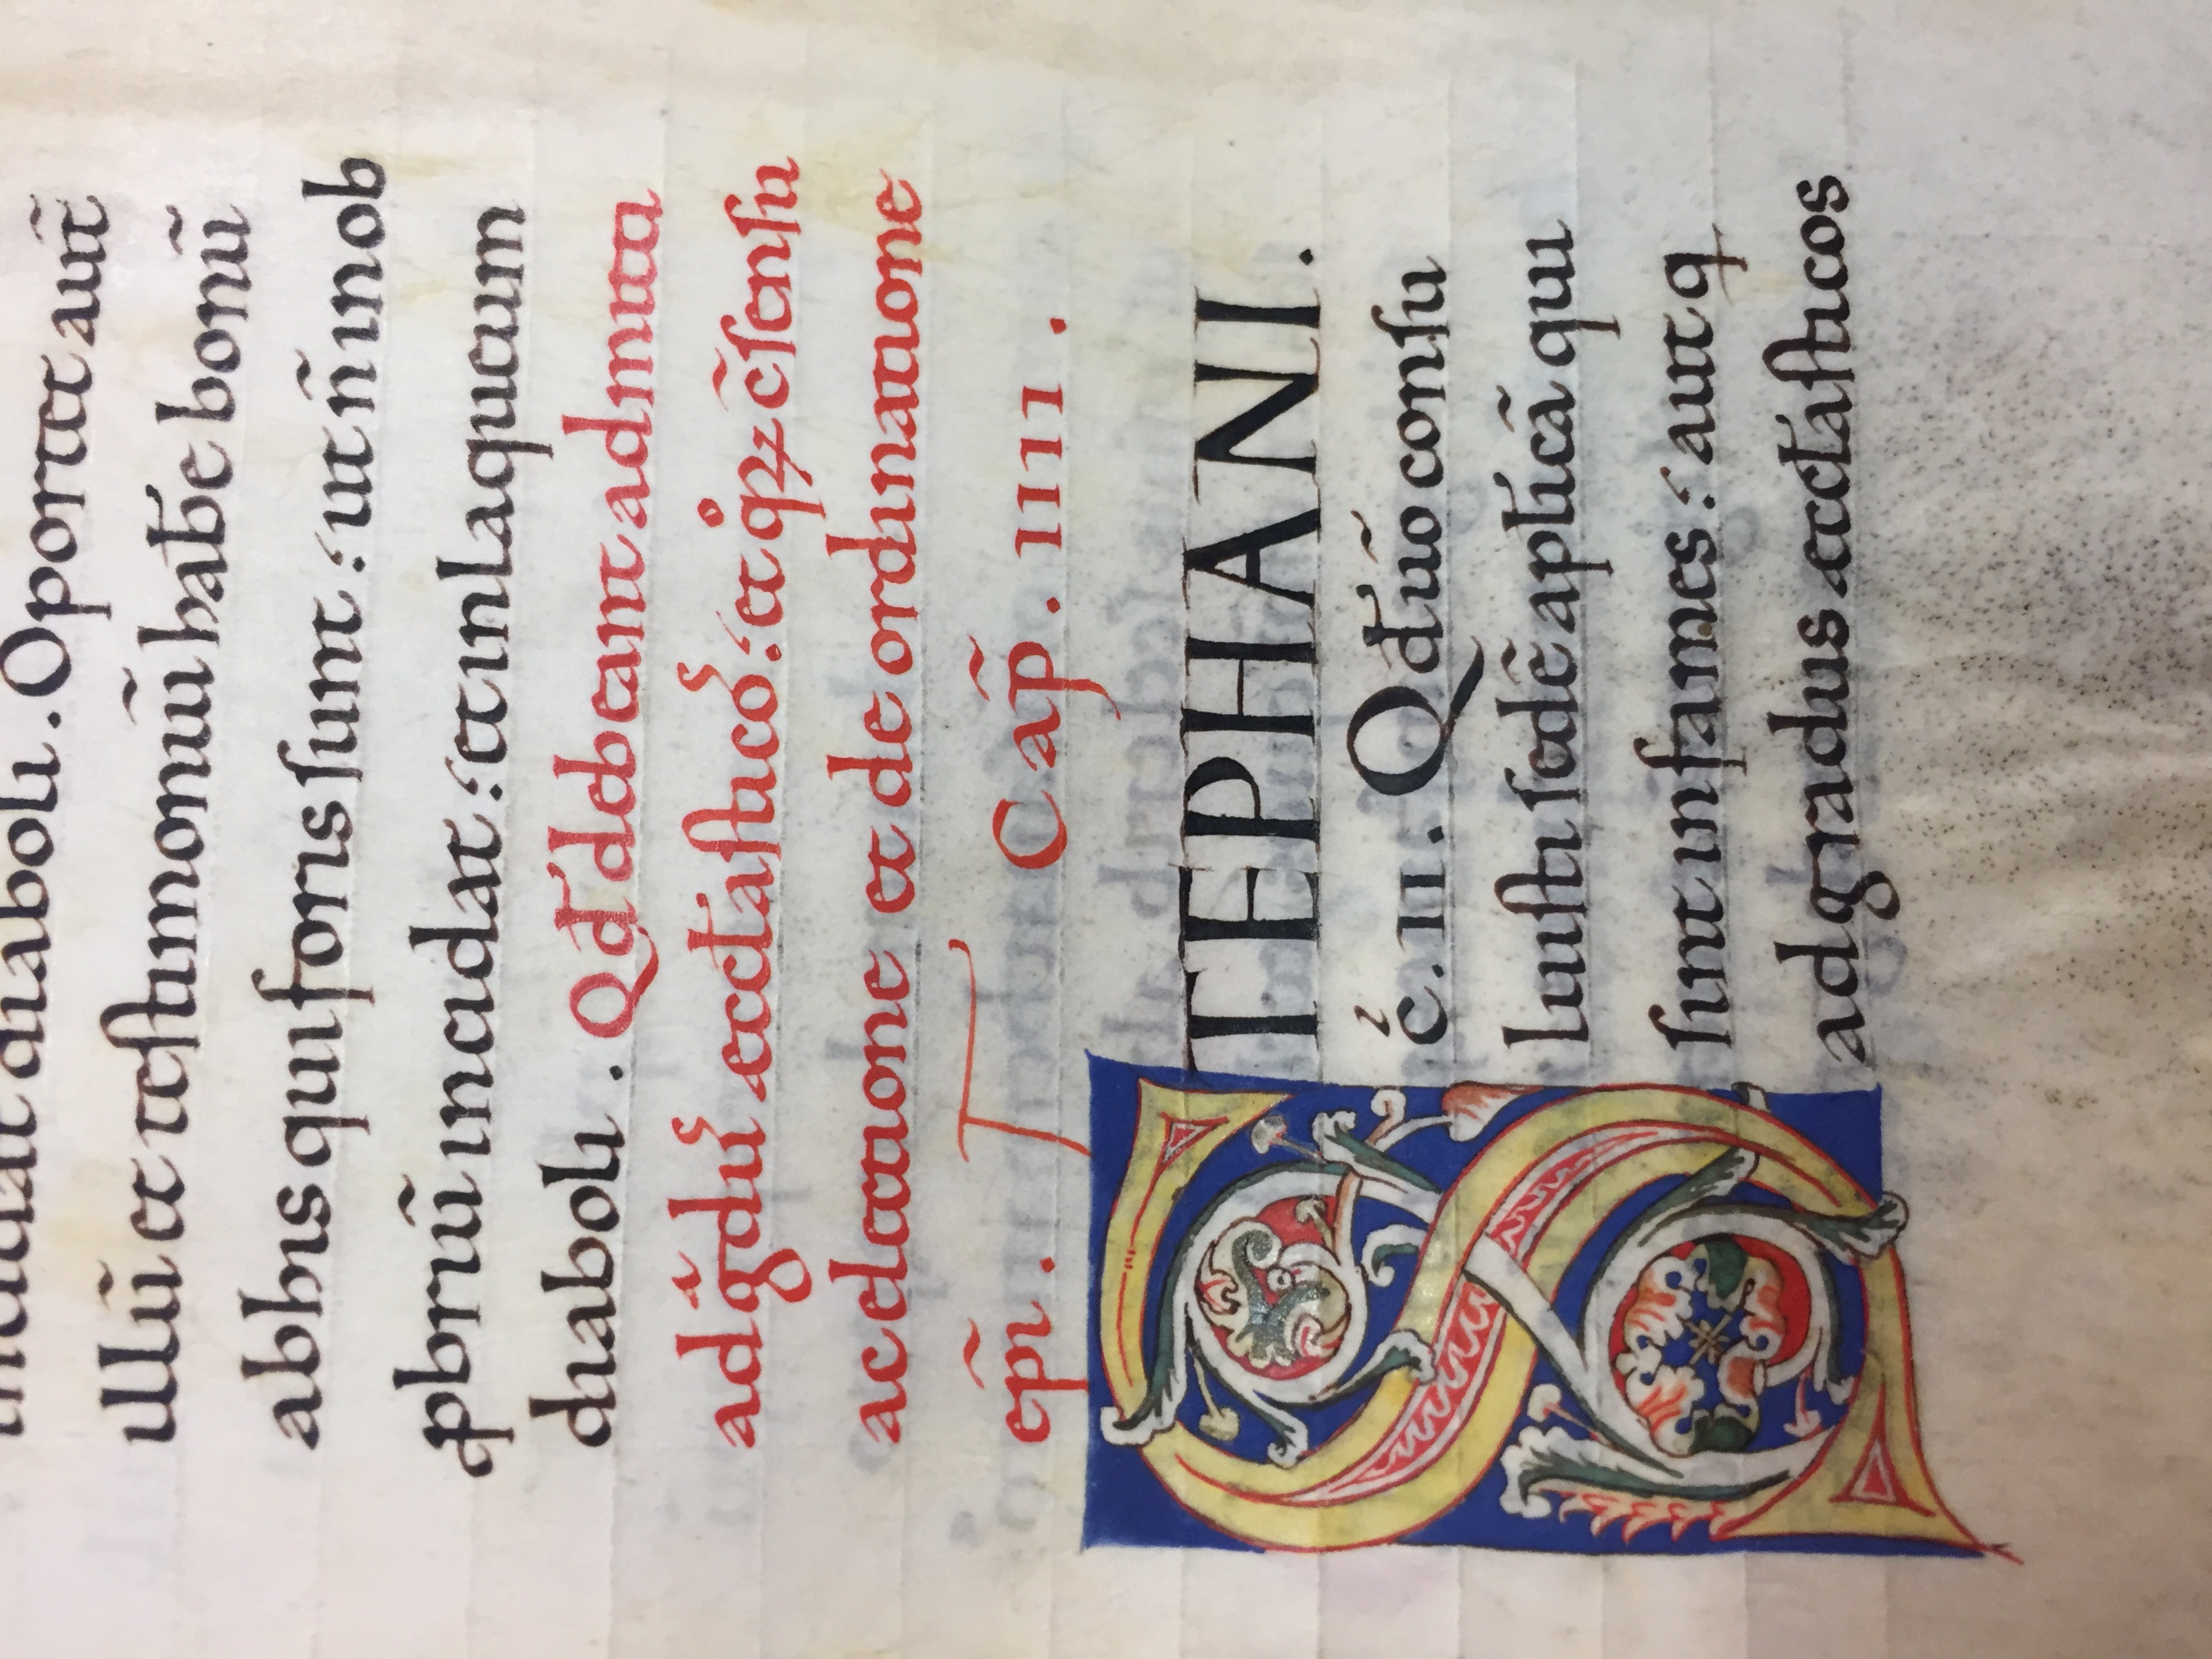 diaboli. Oportet aut̄
illū et testimoniū hab̄e bonū
abhis qui foris sunt: ut ñ inob
ꝓbriū incidat: et inlaqueum
diaboli. Qđ debeant admitti
adgͥdus᷒ ecctasticoꝰ᷒: et qͦꝝ c̄sensu
acelectione et de ordinatione
ep̄i. Cap̄. IIII.
STEPHANI.
cͥ. II. Qđ uō consu
luisti sedē ap̄ticā qui
sint infames: aut ꝗ
adgradus ecctasticos